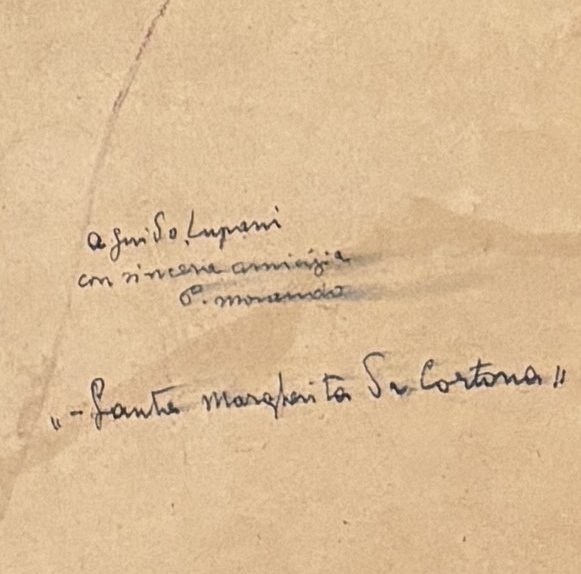 a Guido Lupani
con sincera amicizia
P. Morando
"- Santa Margherita Da Cortona "